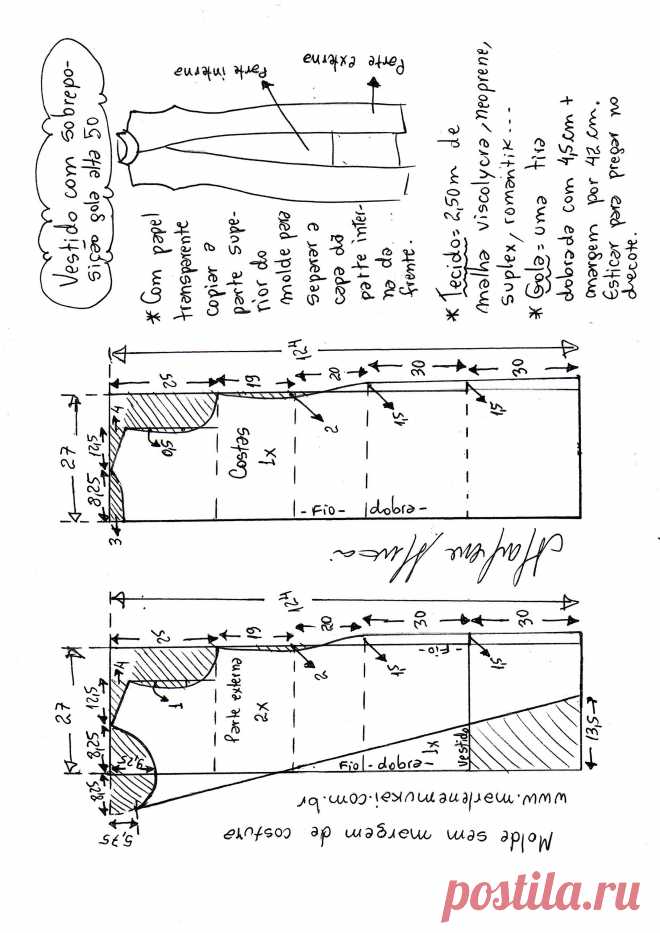 Vestido com sobrepo-
sição gola alta 50
Parte interna
Parte externa
* Com papel
transparente
copiar a
parte supe-
rior do
molde para
separar a
capa da
parte inter-
na da
frente.
* Tecido = 2,50m de
malha viscolycra, neoprene,
suplex, romantik...
* Gola = uma tira
dobrada com 4,5cm +
margem por 42cm.
Esticar para pregar no
decote.
124
25
19
20
30
30
27
8,25
12,5
4
3
0,5
2
1,5
1,5
Costas
1x
- Fio -
dobra -
Marlene Mukai
124
25
19
20
30
30
27
8,25
8,25
12,5
4
9,25
5,75
1
2
1,5
1,5
Parte externa
2x
Fio -
Fio - dobra -
1x
vestido
13,5
www.marlenemukai.com.br
Molde sem margem de costura
postila.ru